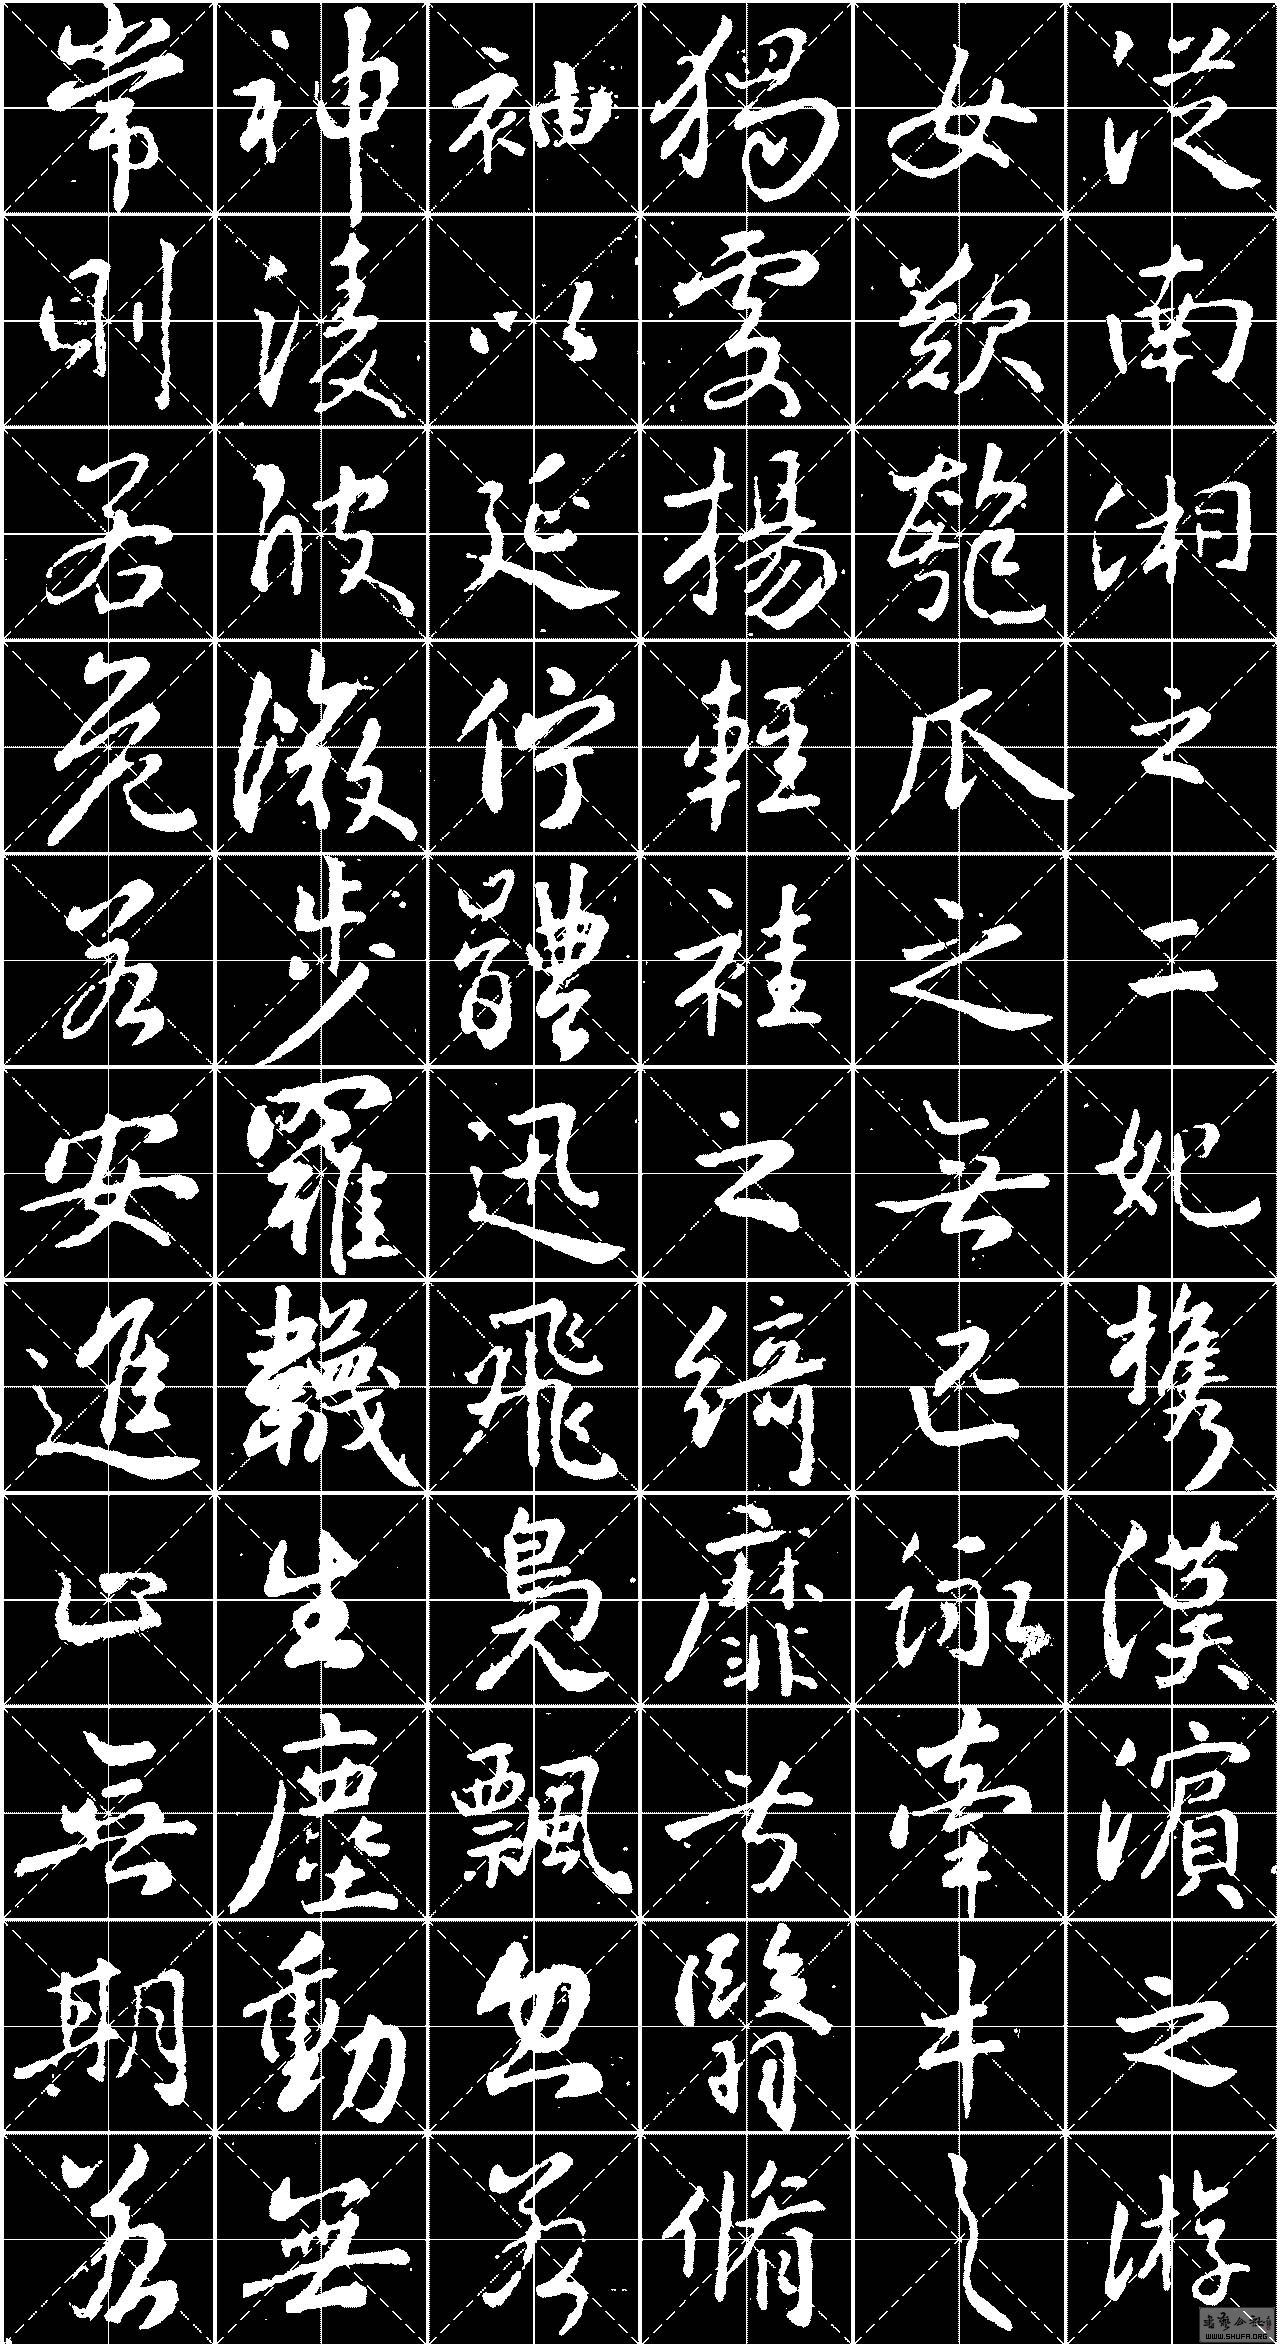 從南湘之二妃攜漢濱之游
女歎匏瓜之無匹詠牽牛之
獨處揚輕袿之綺靡兮翳脩
袖以延佇體迅飛鳧飄忽若
神淩波微步羅韈生塵動無
常則若危若安進止無期若
WWW.SHUFA.ORG